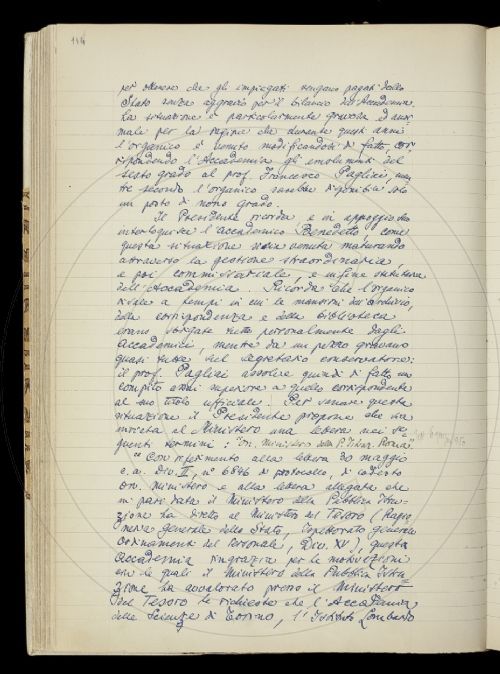 114
per ottenere che gli impiegati vengano pagati dallo
Stato senza aggravio per il bilancio dell'Accademia.
La situazione è particolarmente gravosa ed anor-
male per la ragione che durante questi anni
l'organico è venuto modificandosi di fatto, cor-
rispondendo l'Accademia gli emolumenti del
sesto grado al prof. Francesco Pagliai, men-
tre secondo l'organico sarebbe disponibile solo
un posto di nono grado.
Il Presidente ricorda, e in appoggio
interloquisce l'accademico Benedetto, come
questa situazione sia venuta maturando
attraverso la gestione straordinaria
e poi commissariale, e infine ordinaria
dell'Accademia. Ricorda che l'organico
risale a tempi in cui le mansioni dell'archivio,
della corrispondenza e della biblioteca
erano sbrigate tutte personalmente dagli
Accademici, mentre da un pezzo gravano
quasi tutte sul segretario conservatore:
il prof. Pagliai assolve quindi di fatto un
compito assai superiore a quello corrispondente
al suo titolo ufficiale. Per sanare questa
situazione il Presidente propone che sia
inviata al Ministero una lettera nei se-
guenti termini: "On. Ministero della P. Istruz. Roma."
"Con riferimento alla lettera 30 maggio
c. a. Div. II, n° 6846 di protocollo, di codesto
On. Ministero e alla lettera allegata che
in pari data il Ministero della Pubblica Istru-
zione ha diretto al Ministero del Tesoro (Ragio-
neria Generale dello Stato, Ispettorato generale
ordinamenti del Personale, Div. XV), questa
Accademia ringrazia per le motivazioni
con le quali il Ministero della Pubblica Istru-
zione ha avvalorato presso il Ministero
del Tesoro le richieste che l'Accademia
delle Scienze di Torino, l'Istituto Lombardo